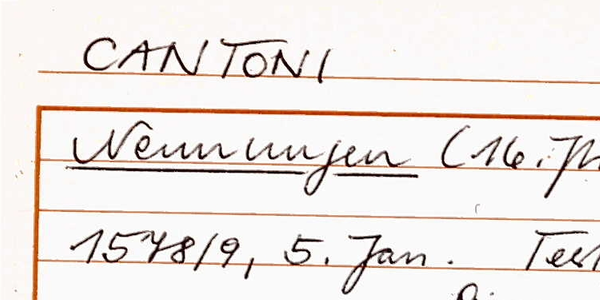 CANTONI
Nennungen (16. Jh
1578/9, 5. Jan. Test